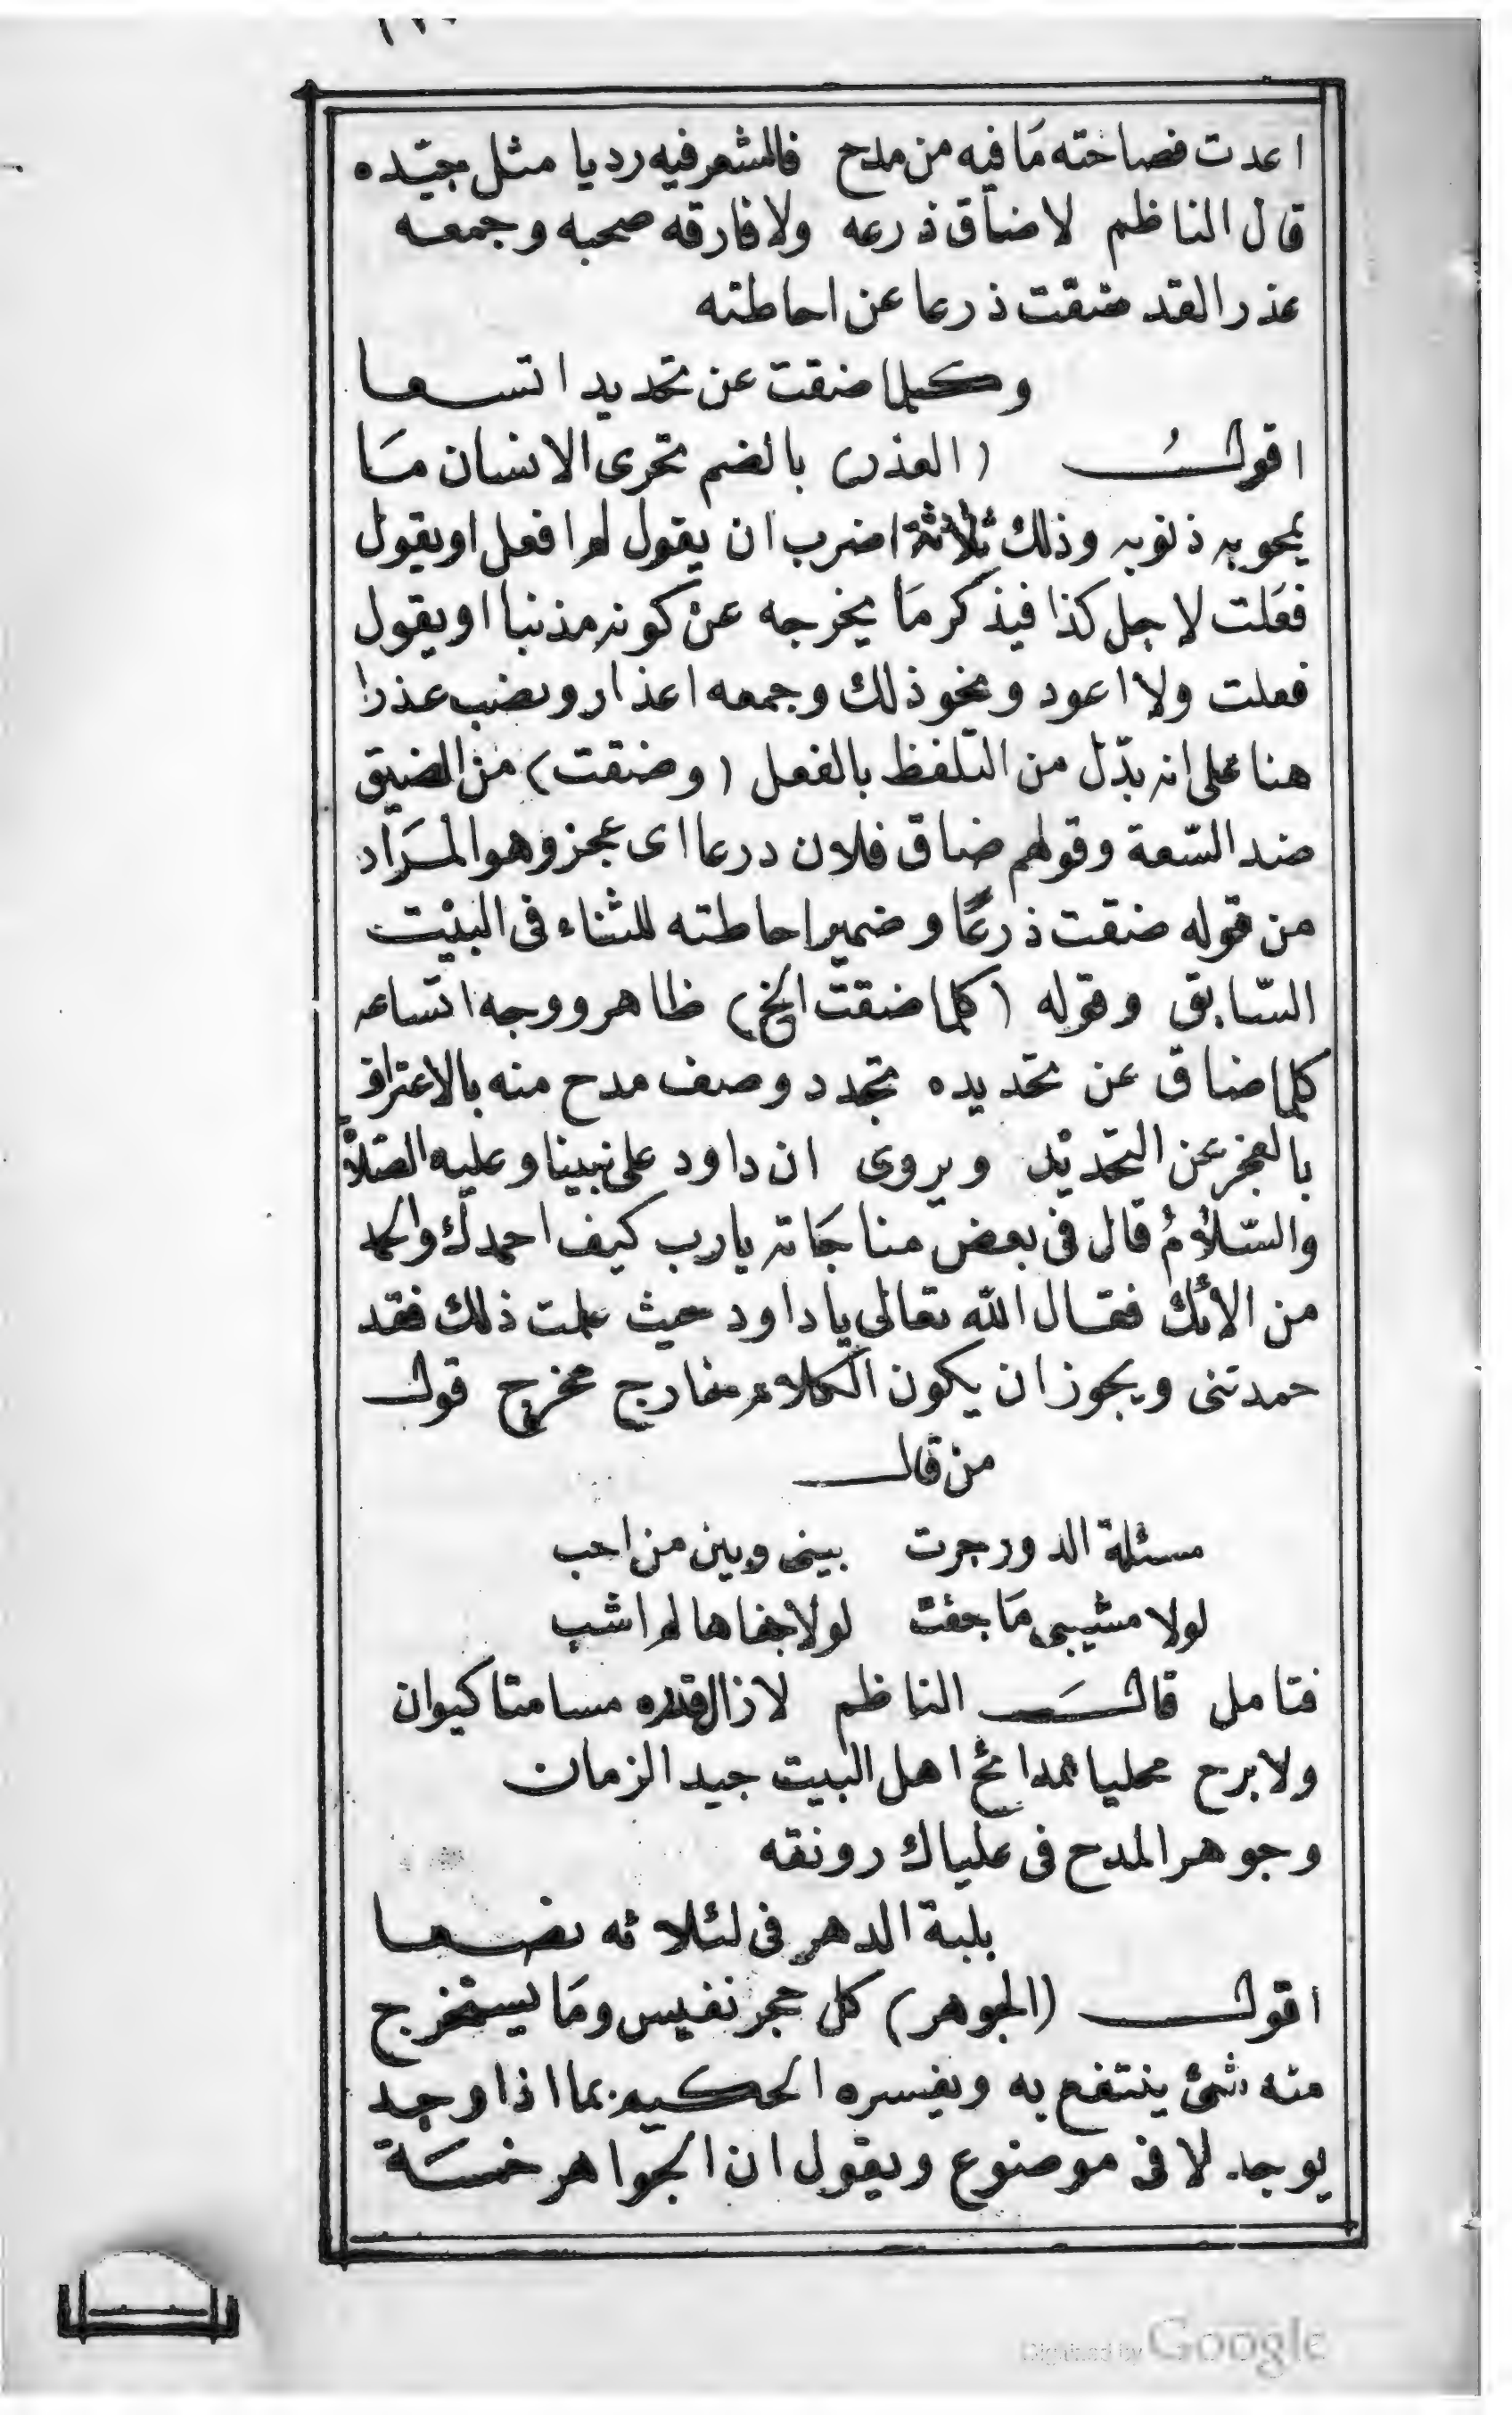 اعدت فصاحته مَا فيه من مدح فالشعر فيه رديا مثل جيّده
قال الناظم لا ضاق ذرعه ولا فارقه صحبه وجمعه
عذرا لقد ضقت ذرعا عن احاطته
وكلما ضقت عن تحديد اتسعا
اقولُ (العذر) بالضم تحرى الانسان مَا
يمحو به ذنوبه وذلك ثلاثة اضرب ان يقول لم افعل او يقول
فعَلت لاجل كذا فيذكر مَا يخرجه عن كونه مذنبا او يقول
فعلت ولا اعود ونحو ذلك وجمعه اعذار ونصب عذرا
هنا على انه بدّل من التلفظ بالفعل (وضقت) من الضيق
ضد السّعة وقولهم ضاق فلان درعا اى عجز وهو المرَاد
من قوله ضقت ذرعًا وضمير احاطته للثناء فى البيْت
السّابق وقوله (كلما ضقت الخ) ظاهر ووجه اتساعه
كلما ضاق عن تحديده تجدد وصف مدح منه بالاعتراف
بالعجز عن التحديْد ويروى ان داود على نبينا وعليه الصّلاة
والسّلامُ قال فى بعض مناجَاته يارب كيف احمدك والحمد
من الائك فقال الله تعالى ياداود حيث علمت ذلك فقد
حمدتنى ويجوز ان يكون الكلام خارج مخرج قول
من قال
مسئلة الدور جرت بينى وبين من احب
لولا مشيبى مَا جفت لولا جفاها لم اشب
فتامل قالَ الناظم لازال قدره مسامتا كيوان
ولابرح محليا بمدائح اهل البيت جيد الزمان
وجوهر المدح فى علياك رونقه
بلبة الدهر فى لئلائه نصعا
اقول (الجوهر) كل حجر نفيس ومَا يستخرج
منه شئ ينتفع به ويفسره الحكيم بما اذا وجد
يوجد لا فى موضوع ويقول ان الجواهر خمسَة
Digitized by Google